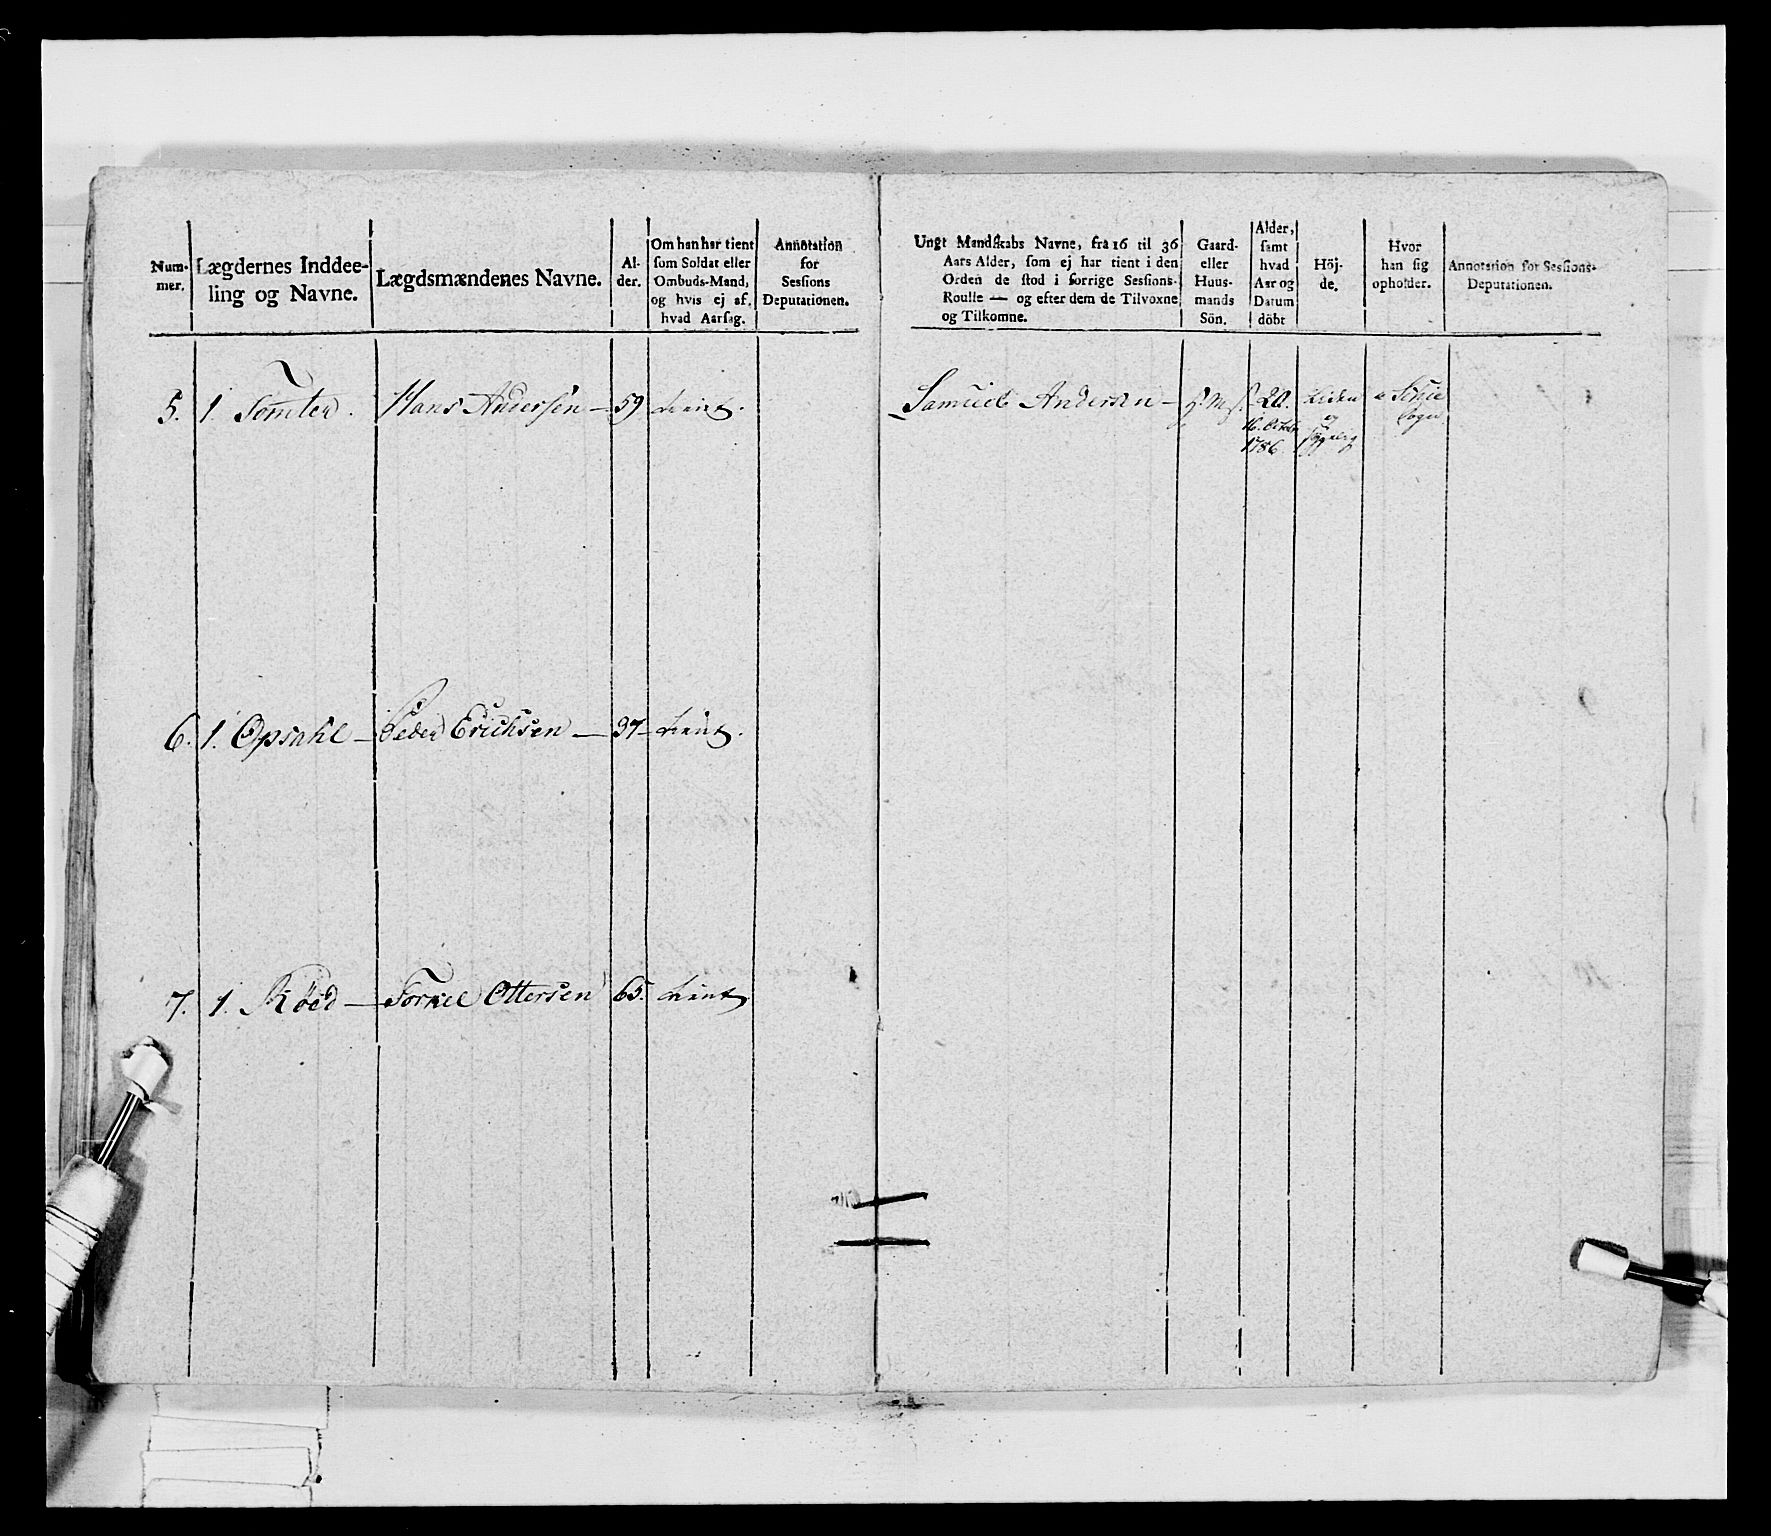 Num-
mer.
Lægdernes Inddee-
ling og Navne.
Lægdsmændenes Navne.
Al-
der.
Om han har tient
som Soldat eller
Ombuds-Mand,
og hvis ej af,
hvad Aarsag.
Annotation
for
Sessions
Deputationen.
Ungt Mandskabs Navne, fra 16 til 36
Aars Alder, som ej har tient i den
Orden de stod i forrige Sessions-
Roulle — og efter dem de Tilvoxne
og Tilkomne.
Gaard-
eller
Huus-
mands
Sön.
Alder,
samt
hvad
Aar og
Datum
döbt
Höj-
de.
Hvor
han sig
opholder.
Annotation for Sessions-
Deputationen.
5. 1. Tomter. Hans Andersen — 59 tient. Samuel Andersen — 20. liden
16. Octobr og
1786
6. 1. Opsahl — Peder Erichsen — 37 — tient.
7. 1. Röed — Torkel Ottersen 65. tient